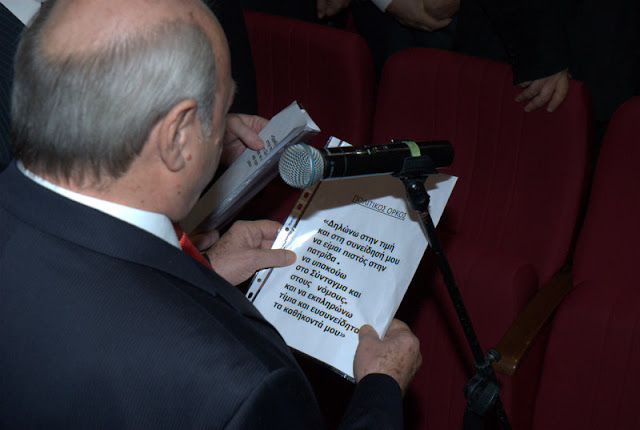 ΠΟΛΙΤΙΚΟΣ ΟΡΚΟΣ
«Δηλώνω στην τιμή
και στη συνείδησή μου
να είμαι πιστός στην
πατρίδα .
να υπακούω
στο Σύνταγμα και
στους νόμους.
και να εκπληρώνω
τίμα και ευσυνείδητα
τα καθήκοντά μου»